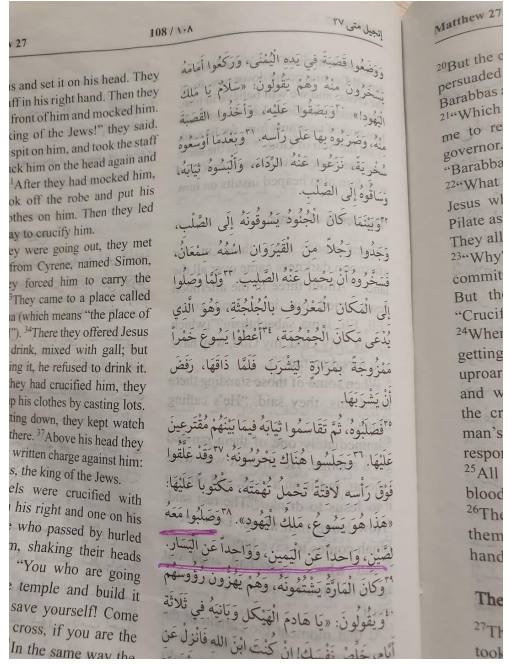 27
108 / ١٠٨
إنجيل متى ٢٧
s and set it on his head. They
ff in his right hand. Then they
front of him and mocked him.
ing of the Jews!” they said.
spit on him, and took the staff
ck him on the head again and
After they had mocked him,
ok off the robe and put his
thes on him. Then they led
ay to crucify him.
ey were going out, they met
from Cyrene, named Simon,
y forced him to carry the
They came to a place called
a (which means “the place of
”). ³⁴There they offered Jesus
drink, mixed with gall; but
ing it, he refused to drink it.
hey had crucified him, they
p his clothes by casting lots.
ting down, they kept watch
there. ³⁷Above his head they
written charge against him:
s, the king of the Jews.
els were crucified with
his right and one on his
who passed by hurled
m, shaking their heads
“You who are going
temple and build it
save yourself! Come
cross, if you are the
In the same way the
وَوَضَعُوا قَصَبَةً فِي يَدِهِ الْيُمْنَى، وَرَكَعُوا أَمَامَهُ
يَسْخَرُونَ مِنْهُ وَهُمْ يَقُولُونَ: «سَلَامٌ يَا مَلِكَ
الْيَهُودِ!» ٣٠وَبَصَقُوا عَلَيْهِ، وَأَخَذُوا الْقَصَبَةَ
مِنْهُ، وَضَرَبُوهُ بِهَا عَلَى رَأْسِهِ. ٣١وَبَعْدَمَا أَوْسَعُوهُ
سُخْرِيَةً، نَزَعُوا عَنْهُ الرِّدَاءَ، وَأَلْبَسُوهُ ثِيَابَهُ،
وَسَاقُوهُ إِلَى الصَّلْبِ.
٣٢وَبَيْنَمَا كَانَ الْجُنُودُ يَسُوقُونَهُ إِلَى الصَّلْبِ،
وَجَدُوا رَجُلاً مِنَ الْقَيْرَوَانِ اسْمُهُ سِمْعَانُ،
فَسَخَّرُوهُ أَنْ يَحْمِلَ عَنْهُ الصَّلِيبَ. ٣٣وَلَمَّا وَصَلُوا
إِلَى الْمَكَانِ الْمَعْرُوفِ بِالْجُلْجُثَةِ، وَهُوَ الَّذِي
يُدْعَى مَكَانَ الْجُمْجُمَةِ، ٣٤أَعْطَوْا يَسُوعَ خَمْراً
مَمْزُوجَةً بِمَرَارَةٍ لِيَشْرَبَ فَلَمَّا ذَاقَهَا، رَفَضَ
أَنْ يَشْرَبَهَا.
٣٥فَصَلَبُوهُ، ثُمَّ تَقَاسَمُوا ثِيَابَهُ فِيمَا بَيْنَهُمْ مُقْتَرِعِينَ
عَلَيْهَا. ٣٦وَجَلَسُوا هُنَاكَ يَحْرُسُونَهُ؛ ٣٧وَقَدْ عَلَّقُوا
فَوْقَ رَأْسِهِ لَافِتَةً تَحْمِلُ تُهْمَتَهُ، مَكْتُوباً عَلَيْهَا:
«هَذَا هُوَ يَسُوعُ، مَلِكُ الْيَهُودِ». ٣٨وَصَلَبُوا مَعَهُ
لِصَّيْنِ، وَاحِداً عَنِ الْيَمِينِ، وَوَاحِداً عَنِ الْيَسَارِ.
٣٩وَكَانَ الْمَارَّةُ يَشْتُمُونَهُ، وَهُمْ يَهُزُّونَ رُؤُوسَهُمْ
٤٠وَيَقُولُونَ: «يَا هَادِمَ الْهَيْكَلِ وَبَانِيَهُ فِي ثَلَاثَةِ
أَيَّامٍ، خَلِّصْ نَفْسَكَ! إِنْ كُنْتَ ابْنَ اللهِ فَانْزِلْ عَنِ
Matthew 27
²⁰But the c
persuaded
Barabbas
²¹“Which
me to re
governor.
“Barabba
²²“What
Jesus wh
Pilate as
They all
²³“Why
commit
But the
“Crucif
²⁴When
getting
uproar
and w
the cr
man’s
respon
²⁵All
blood
²⁶The
them
hand
The
²⁷Th
took